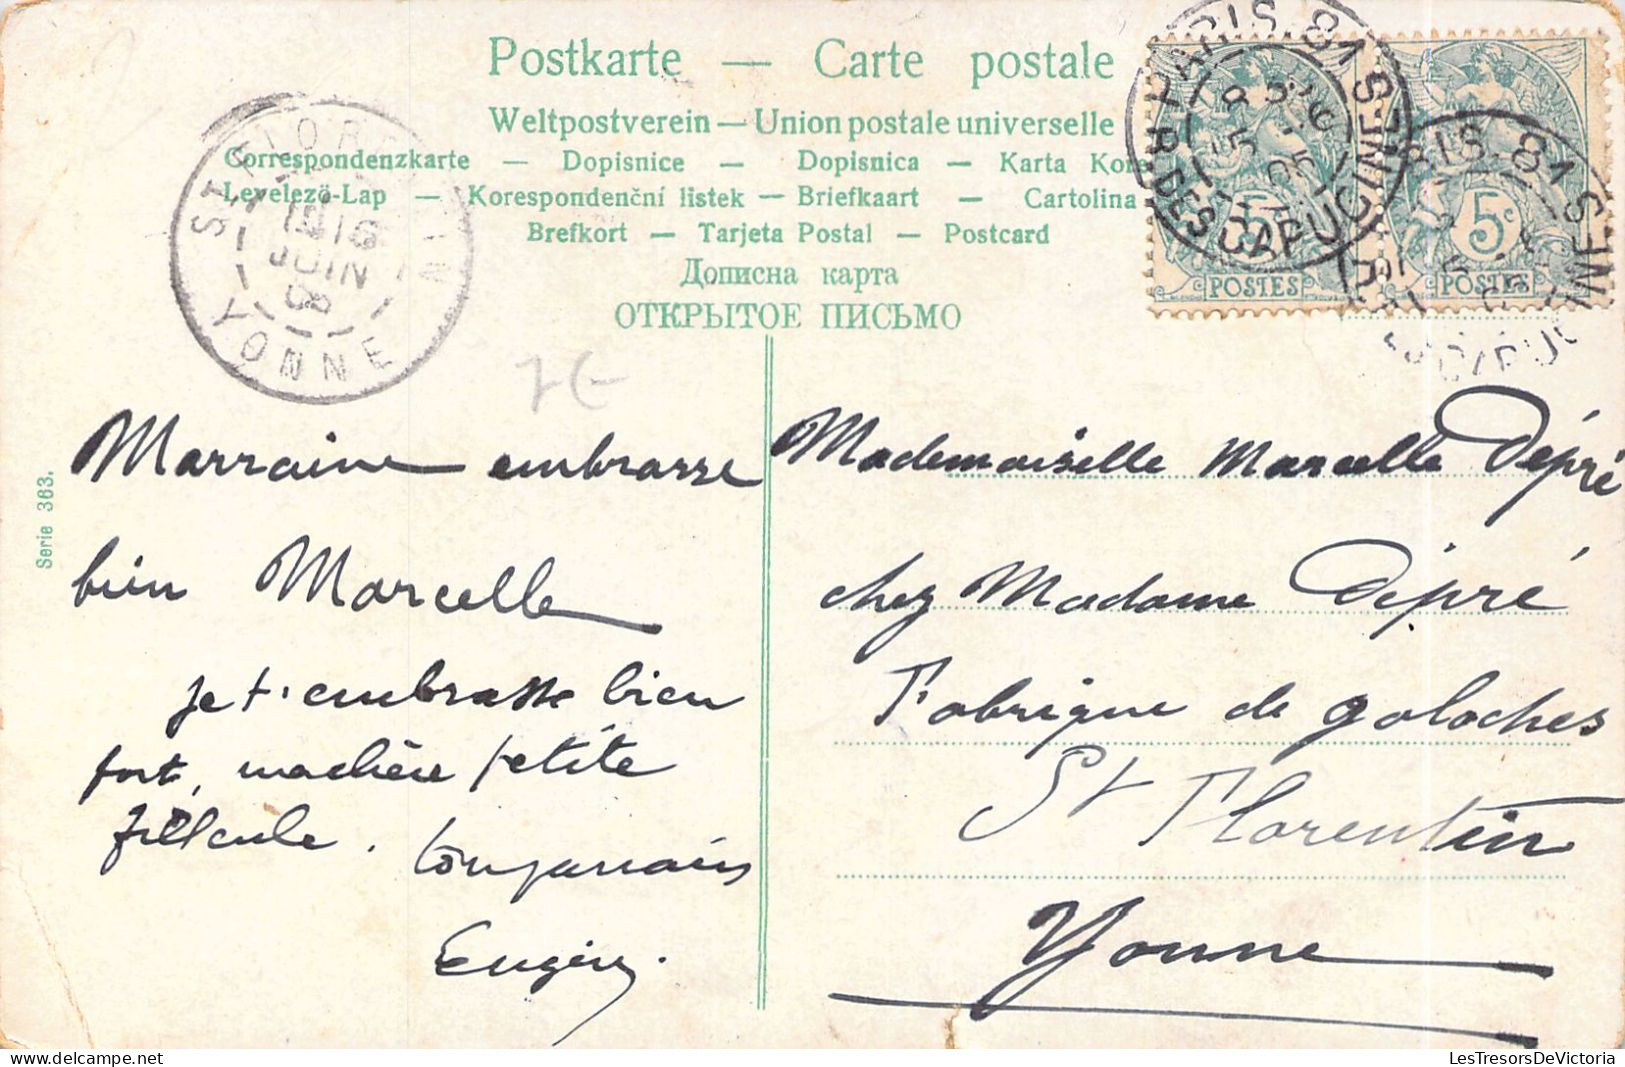 Postkarte — Carte postale
Weltpostverein — Union postale universelle
Correspondenzkarte — Dopisnice — Dopisnica — Karta Kore
Levelezö-Lap — Korespondenční listek — Briefkaart — Cartolina
Brefkort — Tarjeta Postal — Postcard
Дописна карта
ОТКРЫТОЕ ПИСЬМО
PARIS 81
R. DES CAPUCINES
5c
POSTES
5c
POSTES
YONNE
JUIN
7€
Serie 363.
Marraine embrasse
bien Marcelle
je t'embrasse bien
fort, ma chère petite
filleule. Ton parrain
Eugène.
Mademoiselle Marcelle Dépré
chez Madame Dépré
Fabrique de galoches
St Florentin
Yonne
LesTresorsDeVictoria